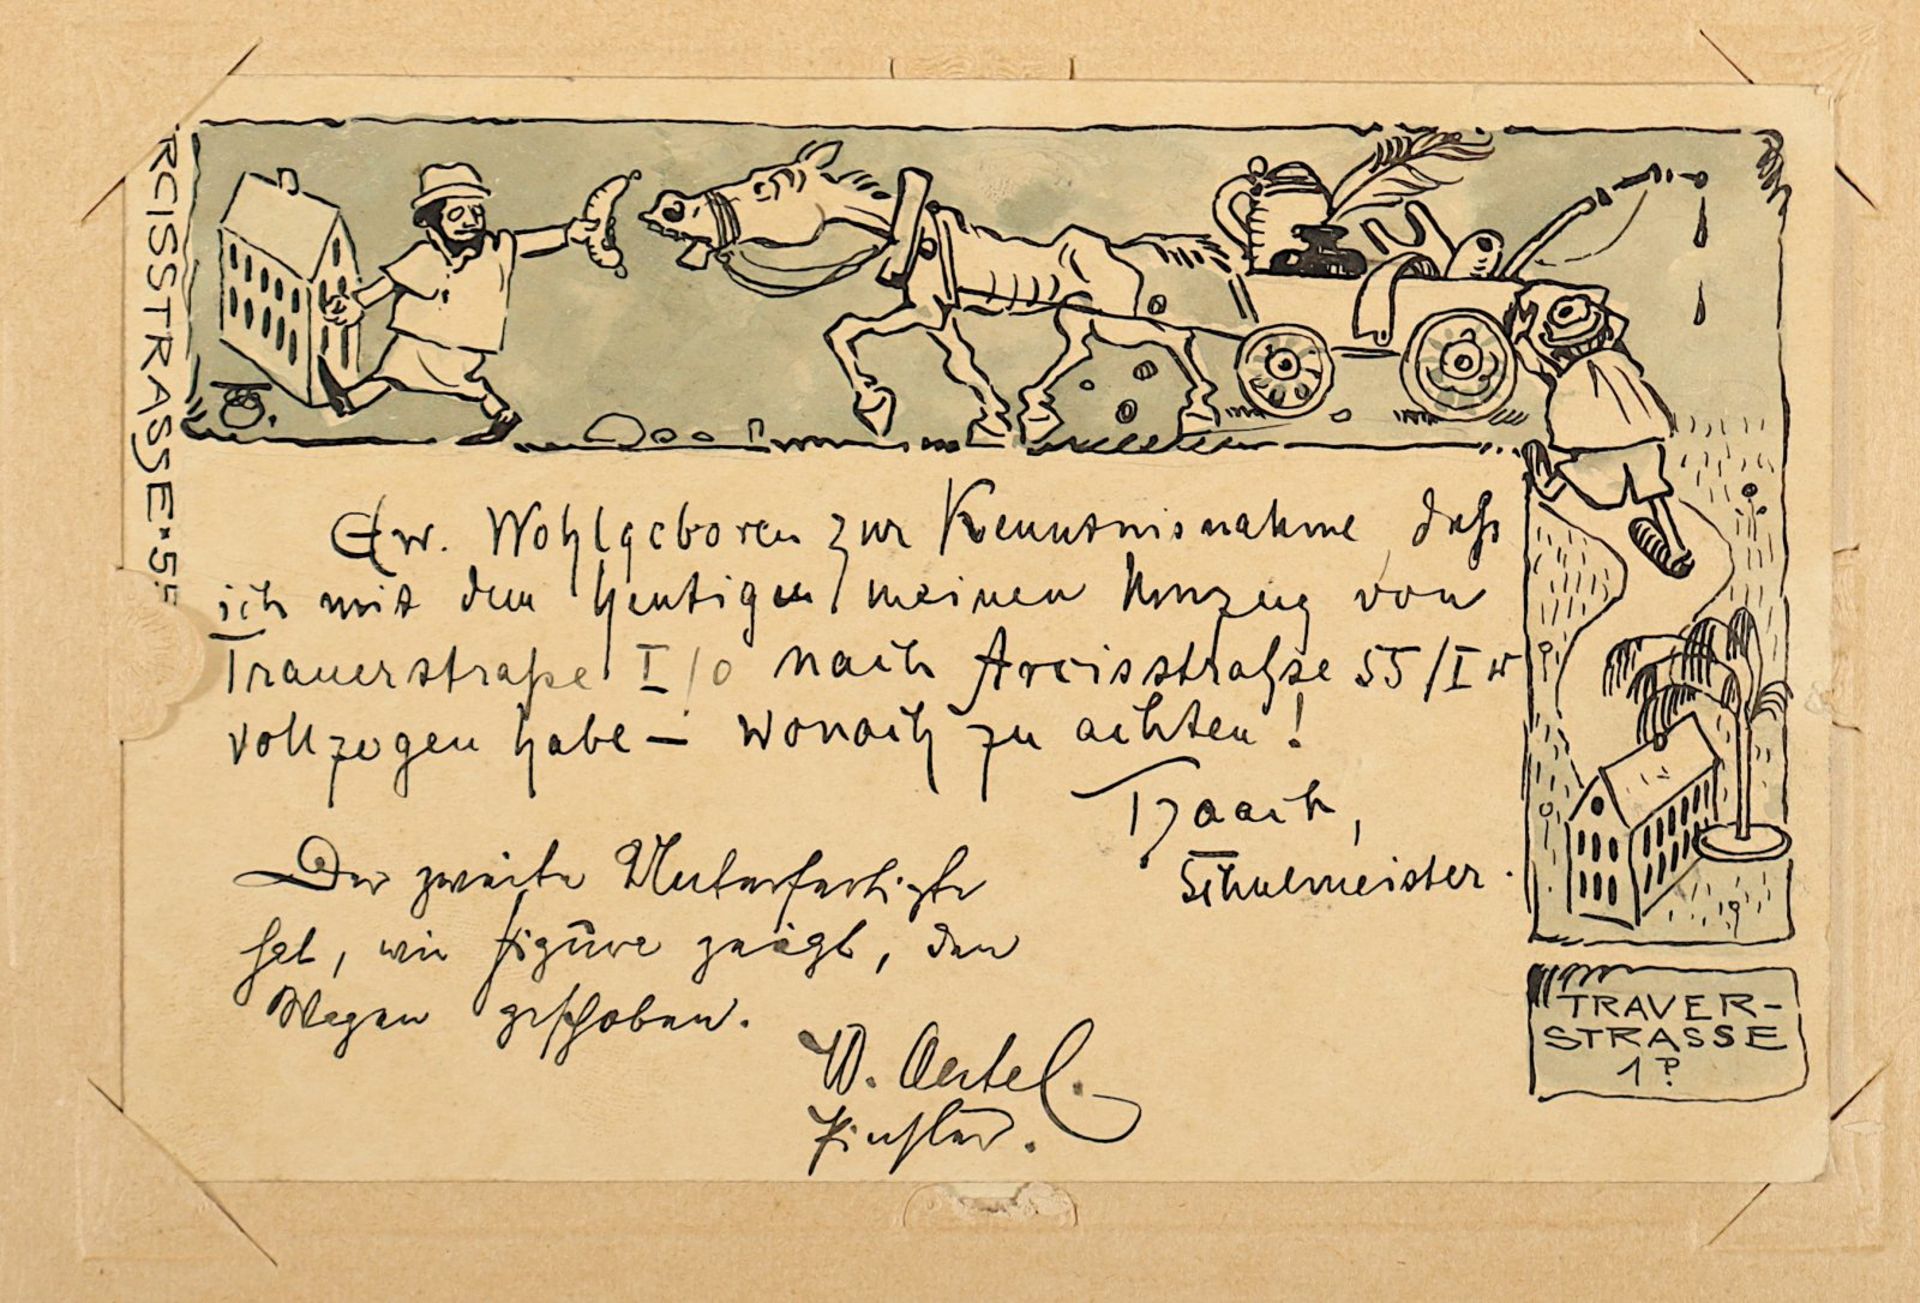 RCISSTRASSE • 55
Ew. Wohlgeboren zur Kenntnisnahme, daß
ich mit dem heutigen meinen Umzug von
Trauerstraße I/0 nach Arcisstraße 55/I w
vollzogen habe — wonach zu achten!
Schulmeister.
Der zweite Unterfertigte
hat, wie figūre zeigt, den
Wagen geschoben.
W. Oertel.
Künstler.
TRAVER-
STRASSE
1 P